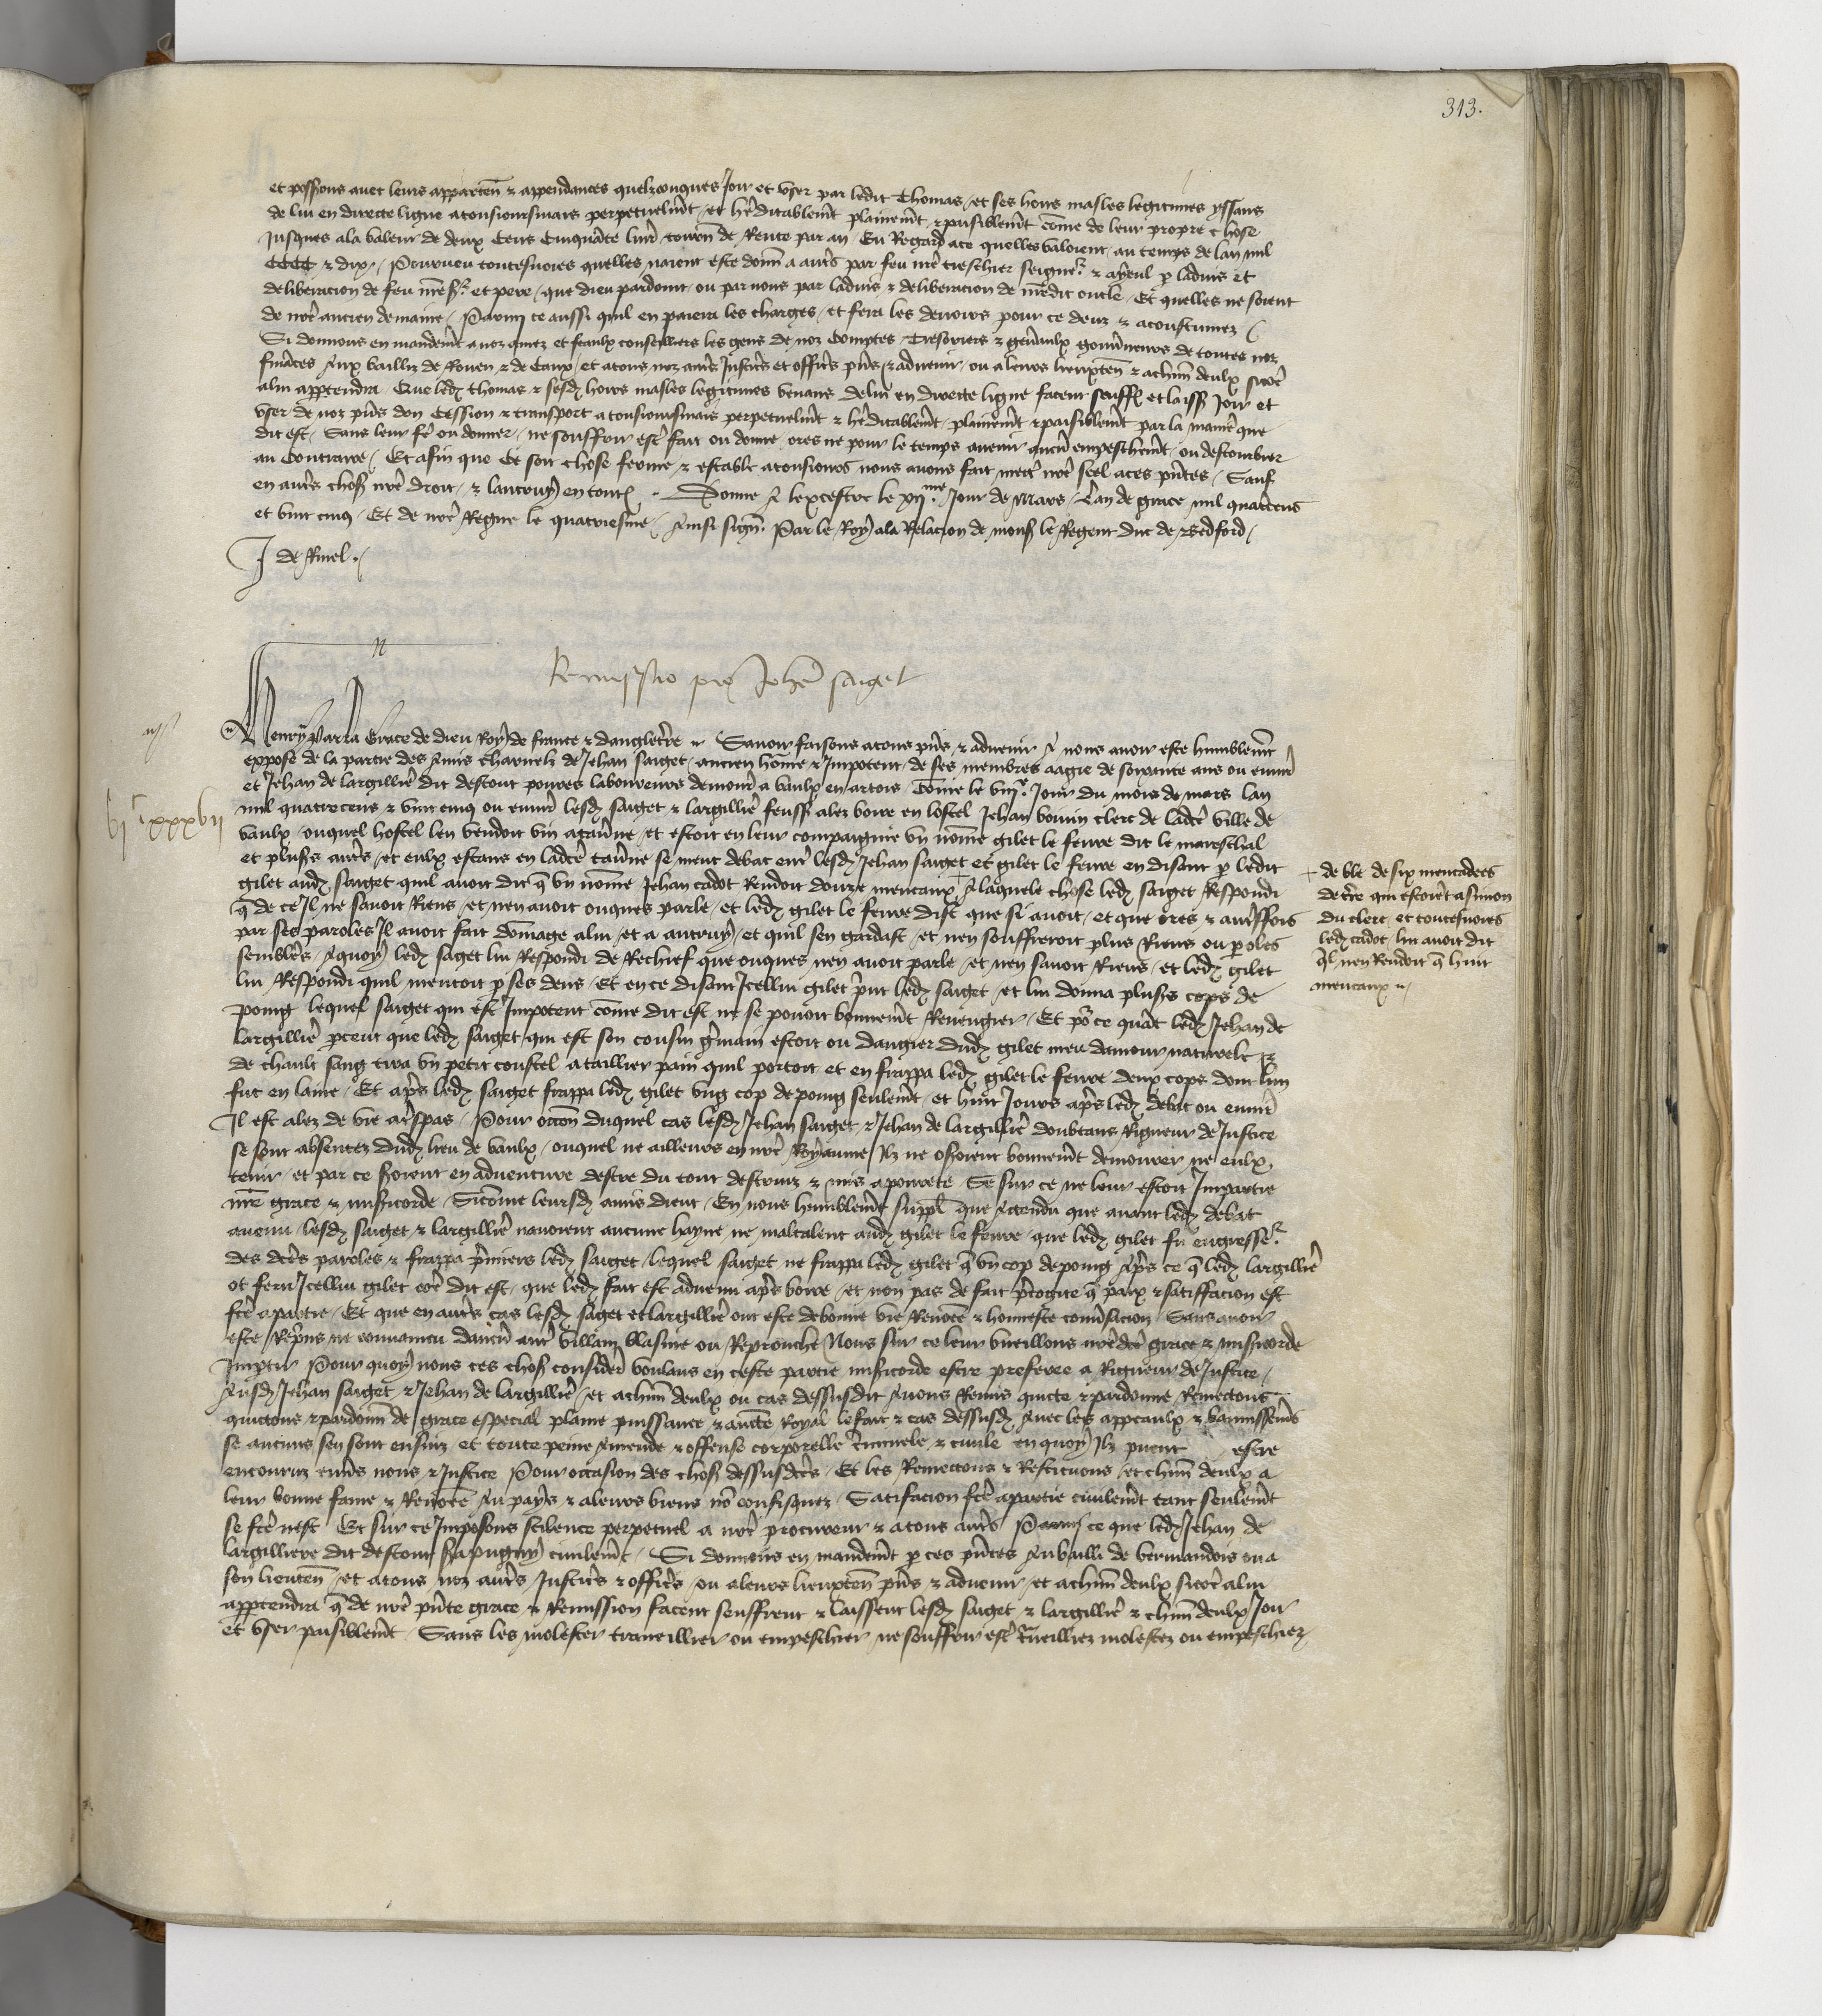 313.
et possons avec leurs apparten̄ & appendances quelzconques Joir et user par ledit Thomas / et ses hoirs masles legitimes yssans
de lui en directe ligne atousioursmais perpetuelmēt / et hēditablemēt plainemēt & paisiblemēt cōme de leur propre chose
Jusques ala valeur de deux Cens Cinquāte livr̄ tourn̄ de Rente par an / Eu Regard ace quelles valoient / au temps de lan mil
CCCC & dix / Pourveu toutesvoies quelles naient este donn̄ a autr̄s par feu nr̄e treschier seignr̄ & ayeul ꝑ ladvis et
deliberacion de feu nr̄e sr̄ et pere / que dieu pardoint / ou par nous par ladvis & deliberacion de nr̄edit oncle / Et quelles ne soient
de nr̄e ancien demaine / Parmi ce aussi quil en paiera les charges / et fera les devoirs pour ce deuz & acoustumez /
Si donnons en mandemēt a noz amez et feaulx conseilliers les gens de noz Comptes / Tresoriers & gen̄aulx gouv̄neurs de toutes noz
fināces Aux bailliz de Rouen & de Caux / et atous noz autr̄s Justic̄rs et offic̄rs pn̄s & advenir / ou aleurs lieuxten̄ & achūn deulx sicōe
alui appartendra Que ledꝫ thomas & sesdꝫ hoirs masles legitimes venans de lui en directe ligne facent seuffr̄ et laiss̄ Joir et
user de noz pn̄s don Cession & transport atousioursmais perpetuelmēt & hēditablemēt / plainemēt & paisiblemēt par la manier̄ que
dit est / Sans leur fēr ou donner / ne souffrir estr̄ fait ou donne ores ne pour le temps avenir aucū empeschemēt / ou destourbier
au Contraire / Et afin que Ce soit chose ferme & estable atousiours nous avons fait mettr̄ nr̄e seel aces pn̄tes / Sauf
en autr̄s chosꝫ nr̄e droit / & lautruy en toutꝫ Donne A leycestre le xij.me Jour de Mars / Lan de grace mil quatr̄cens
et vint cinq / Et de nr̄e Regne le quatriesme / Ainsi sign̄. Par le Roy ala Relacion de mons̄ le Regent duc de Bedford /
J de Rinel ./
Remissio pro Joh̄e saiget
Henry par la Grace de dieu Roy de france & dangletērre Savoir faisons atous pn̄s & advenir A nous avoir este humblemēt
vjC xxxvij
expose de la partie des Amis charnelz de Jehan Saiget / ancien hōme & Impotent / de ses membres aagie de soixante ans ou envir̄
et Jehan de largillier̄ dit destout povres laboureurs demour̄ a vaulx en artois Cōme le viij.e Jour du mois de mars lan
mil quatrecens & vint cinq ou envir̄ lesdꝫ saiget & largillier̄ feussꝫ alez boire en lostel Jehan boivin clerc de ladc̄e ville de
vaulx / ouquel hostel len vendoit vin ataūne / et estoit en leur compaignie un nōme gilet le fevre dit le mareschal
et plus̄rs autr̄s / et eulx estans en ladc̄e taūne se meut debat entr̄ lesdꝫ Jehan saiget et gilet le fevre en disant ꝑ ledit
gilet audꝫ saiget quil avoit dit q̄ un nōme Jehan cadot Rendoit douze mencaux + A laquele chose ledꝫ saiget Respondi
+ de ble de six mencadees
de tr̄re qui estoiēt a simon
du clerc / et toutesvoies
ledꝫ cadot / lui avoit dit
q̄l nen Rendoit q̄ huit
mencaux /
q̄ de ce Il ne savoit Riens / et nen avoit onques parle / et ledꝫ gilet le fevre dist que si avoit / et que ores & autr̄ffois
par ses paroles Il avoit fait dōmage alui / et a autruy / et quil sen gardast / et nen souffreroit plus Riens ou ꝑoles
semblēs / Aquoy ledꝫ saiget lui Respondi de Rechief que onques nen avoit parle / et nen savoit Riens / et ledꝫ gilet
lui Respondi quil mentoit ꝑ ses dens / Et en ce disant Icellui gilet p̄nt ledꝫ saiget / et lui donna plus̄rs cops de
poing lequel saiget qui est Impotent cōme dit est ne se povoit bonnemēt Revengier / Et po̅ ce quāt ledꝫ Jehan de
largillier̄ ꝑceut que ledꝫ saiget qui est son cousin ḡmain estoit ou dangier dudꝫ gilet meu damour naturele &
de chault sang tira un petit coustel ataillier pain quil portoit et en frappa ledꝫ gilet le fevre deux cops dont lun
fut en laine / Et apr̄s ledꝫ saiget frappa ledꝫ gilet ung cop de poing seulemēt / et huit Jours apr̄s ledꝫ debat ou envir̄
Il est alez de vie atr̄spas / Pour occōn duquel cas lesdꝫ Jehan saiget & Jehan de largillier̄ doubtans Rigueur de Justice
se sont absentez dudꝫ lieu de vaulx / ouquel ne ailleurs en nr̄e Royaume Ilz ne oseroient bonnemēt demourer ne eulx
tenir / et par ce seroient en adventure destre du tout destruiz & mis a povrete Se sur ce ne leur estoit Impartie
nr̄e grace & misericorde / Sicōme leursdꝫ amis dient / En nous humblemēt suppl̄ que Attendu que avant ledꝫ debat
avenu / lesdꝫ saiget & largillier̄ navoient aucune hayne ne maltalent audꝫ gilet le fevre / que ledꝫ gilet fu engresseꝰ
des dc̄es paroles & frappa p̄miers ledꝫ saiget / lequel saiget ne frappa ledꝫ gilet q̄ un cop de poing Apr̄s ce q̄ ledꝫ largillier̄
ot feru Icellui gilet cōe dit est / que ledꝫ fait est advenu apr̄s boire / et non pas de fait p̄cogite q̄ paix & satiffacion est
fc̄e a partie / Et que en autr̄s cas lesdꝫ saiget et largillier̄ ont este de bonne vie Renōmee & honneste conūsacion / Sans avoir
este Repr̄ins ne convaincu daucū autr̄ villain blasme ou Reprouche / Nous sur ce leur vueillons nr̄edc̄e grace & mis̄icorde
Imptir Pour quoy nous ces chosꝫ consider̄ voulans en ceste partie mis̄icorde estre preferee a Rigueur de Justice /
Ausdꝫ Jehan saiget & Jehan de largillier̄ / et achūn deulx ou cas dessusdit Avons Remis quicte & pardonne / Remectons
quictons & pardonn̄ de grace especial plaine puissance & aucte Royal le fait & cas dessusdꝫ Avec les appeaulx & bannissemēs
se aucuns sen sont ensuiz / et toute peine Amende & offense corporelle c̄iminele & civile en quoy Ilz pevent estre
encouruz envs̄ nous & Justice Pour occasion des chosꝫ dessusdc̄es / Et les Remectons & Restituons / et chūn deulx a
leur bonne fame & Renōmee Au pays & aleurs biens nō confisquez / Satifacion fc̄e apartie civilemēt tant seulemēt
se fc̄e nest Et sur ce Imposons scilence perpetuel a nr̄e procureur & atous autr̄s Parmi ce que ledꝫ Jehan de
largilliere dit destout sera pugny civilemēt / Si donnons en mandemēt ꝑ ces pn̄tes Au bailli de vermandois ou a
son lieuten̄ / et atous noz autr̄s / Justic̄rs & offic̄rs / ou aleurs lieuxten̄ pn̄s & advenir / et achūn deulx sicōe alui
appartendra q̄ de nr̄e pn̄te grace & Remission facent seuffrent & laissent lesdꝫ saiget & largillier̄ & chūn deulx Joir
et user paisiblemēt Sans les molester traveillier ou empeschier / ne souffrir estr̄ tr̄veilliez molestez ou empeschiez